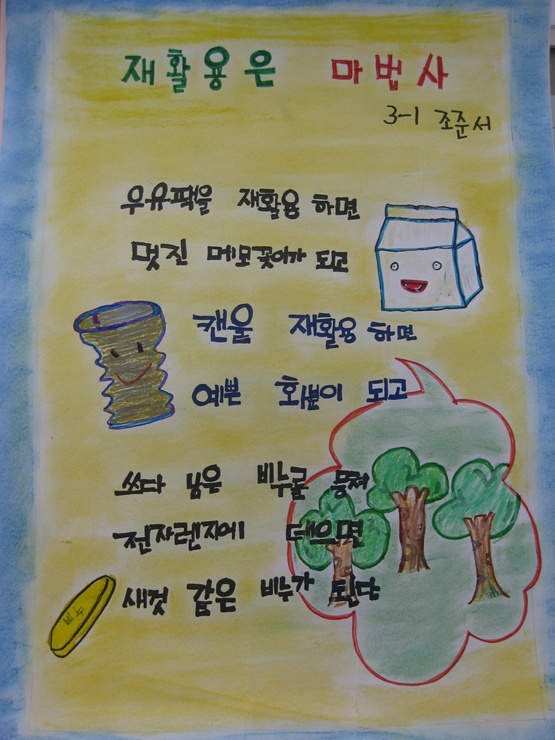 재활용은 마법사
3-1 조준서
우유팩을 재활용 하면
멋진 메모꽂이가 되고
캔을 재활용 하면
예쁜 화분이 되고
쓰다 남은 비누를 뭉쳐
전자렌지에 데으면
새것 같은 비누가 된단